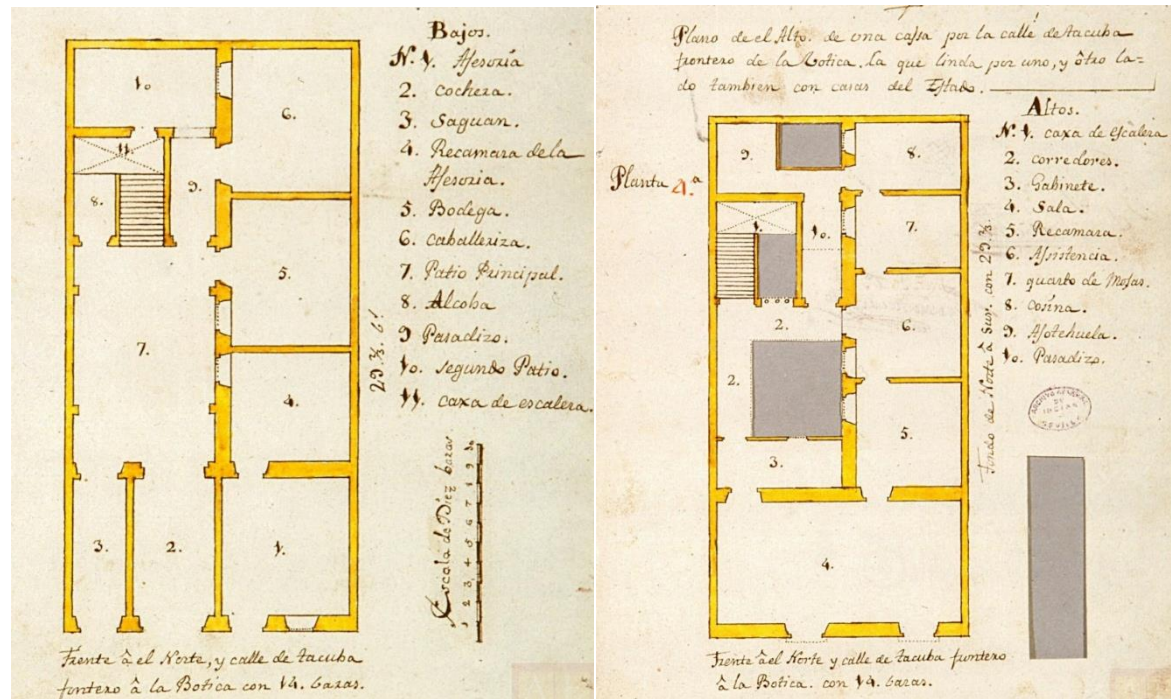 Bajos.
N.º 1. Assesoria
2. cochera.
3. Saguan.
4. Recamara de la
Assesoria.
5. Bodega.
6. caballeriza.
7. Patio Principal.
8. Alcoba
9 Pasadizo.
10. segundo Patio.
11. caxa de escalera.
10.
6.
11.
8.
9.
5.
7.
4.
3.
2.
1.
Escala de Diez baras
1 2 3 4 5 6 7 8 9 10
Frente â el Norte, y calle de tacuba
funtero â la Botica con 14. baras.
Plano de el Alto. de una cassa por la calle de tacuba
frontero de la Botica. La que linda por uno, y ôtro la=
do tambien con casas del Estado.
Planta 4.ª
Altos.
N.º 1. caxa de escalera
2. corredores.
3. Gabinete.
4. Sala.
5. Recamara.
6. Assistencia.
7. quarto de Mosas.
8. cosina.
9. Asotehuela.
10. Pasadizo.
9.
8.
1.
10.
7.
2.
6.
2.
5.
3.
4.
Fondo de Norte â Sur, con 29
ARCHIVO GENERAL
DE
INDIAS
SEVILLA
Frente âel Norte y calle de tacuba funtero
â la Botica. con 14. baras.